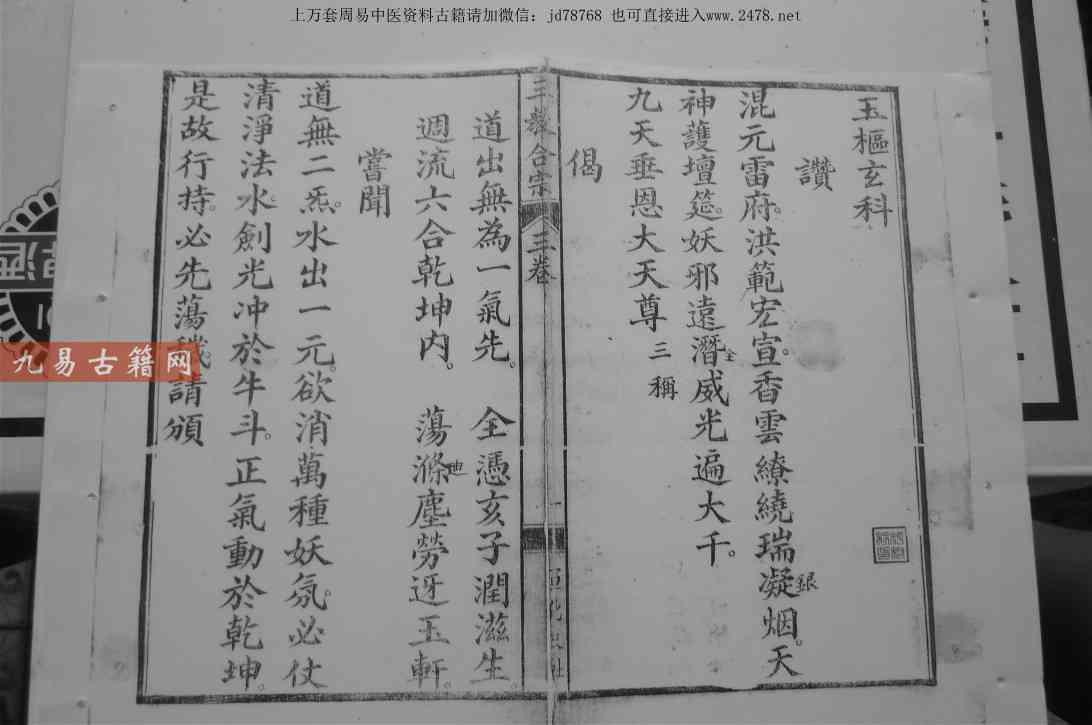 上万套周易中医资料古籍请加微信：jd78768 也可直接进入www.2478.net
玉樞玄科
讚
混元雷府。洪範宏宣。香雲繚繞瑞凝烟。天
銀
神護壇筵。妖邪遠潛威光遍大千。
全
九天垂恩大天尊 三稱
偈
三教合宗 三卷 一
道出無為一氣先。 全憑亥子潤滋生。
週流六合乾坤內。 蕩滌塵勞迓玉軒。
地
嘗聞
道無二炁。水出一元。欲消萬種妖氛。必仗
清淨法水。劍光冲於牛斗。正氣動於乾坤。
是故行持。必先蕩穢請頒
九易古籍网